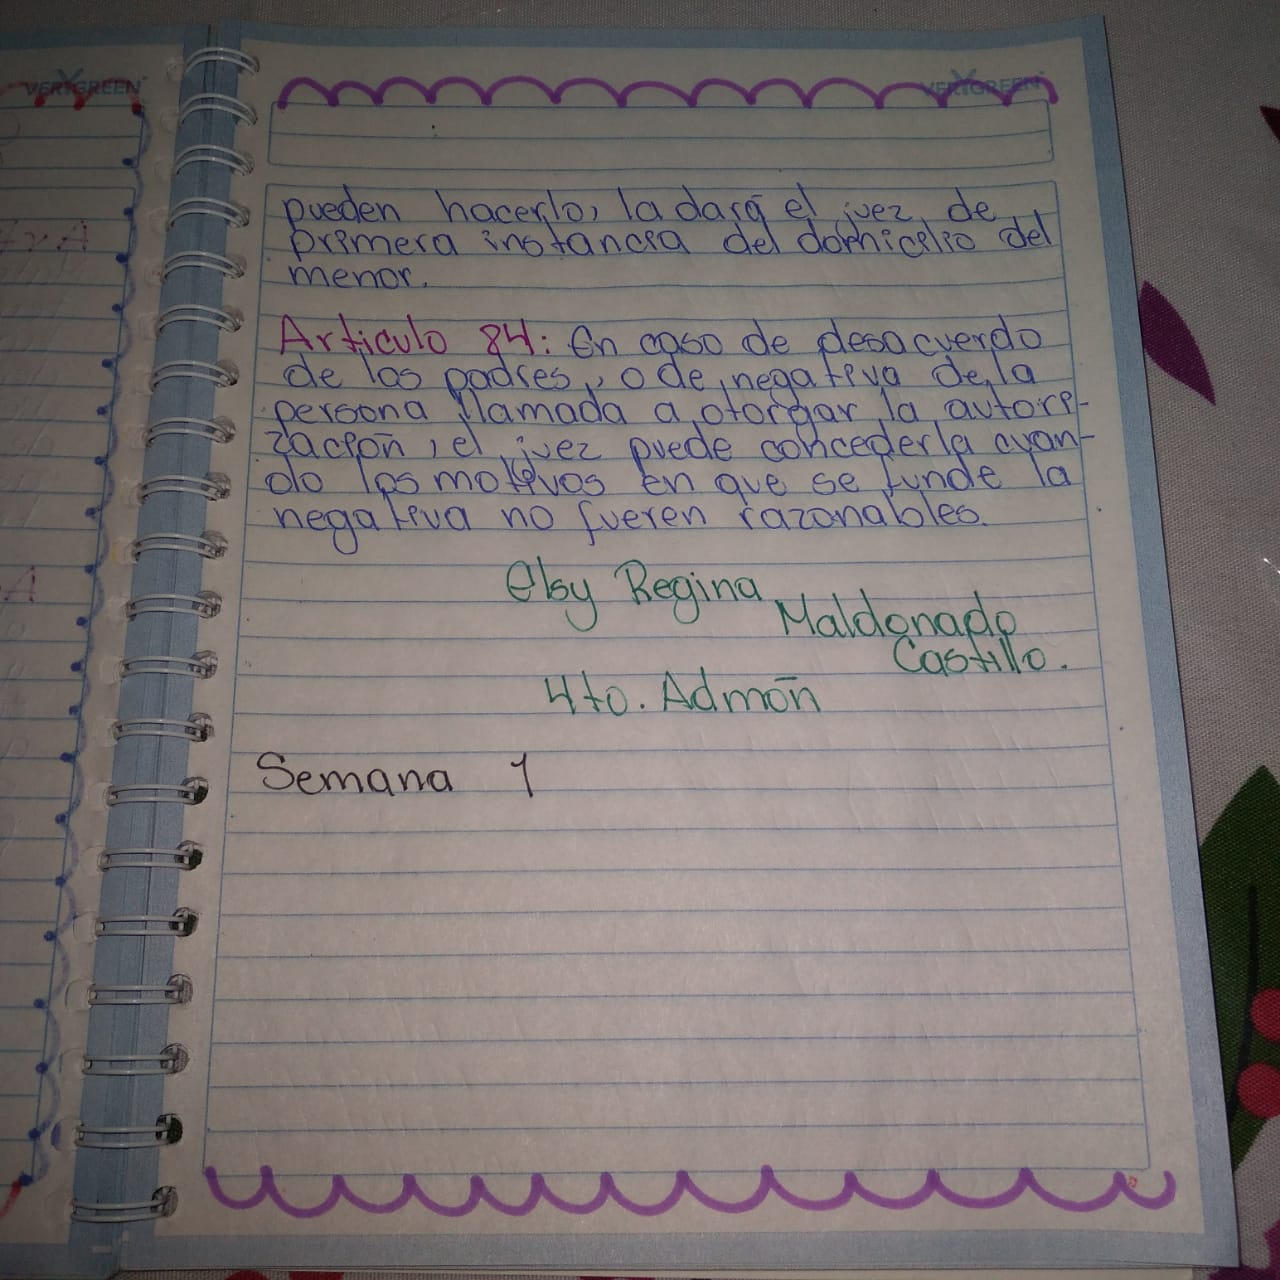 VERYGREEN
VERYGREEN
pueden hacerlo, la dará el juez de
primera instancia del domicilio del
menor.
Articulo 84: En caso de desacuerdo
de los padres, o de negativa de la
persona llamada a otorgar la autori-
zación, el juez puede concederla cuan-
do los motivos en que se funde la
negativa no fueren razonables.
Elsy Regina
Maldonado
Castillo.
4to. Admón
Semana 1